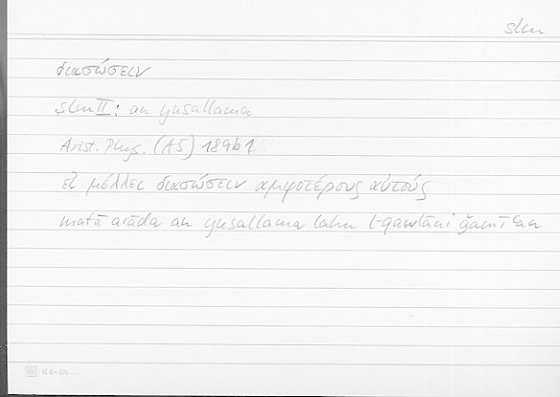 slm
διασώσειν
slm II: an yusallama
Arist. Phys. (A5) 189b1
εἰ μέλλει διασώσειν ἀμφοτέρους αὐτούς
matā arāda an yusallama lahu l-qawlāni ǧamīʿan